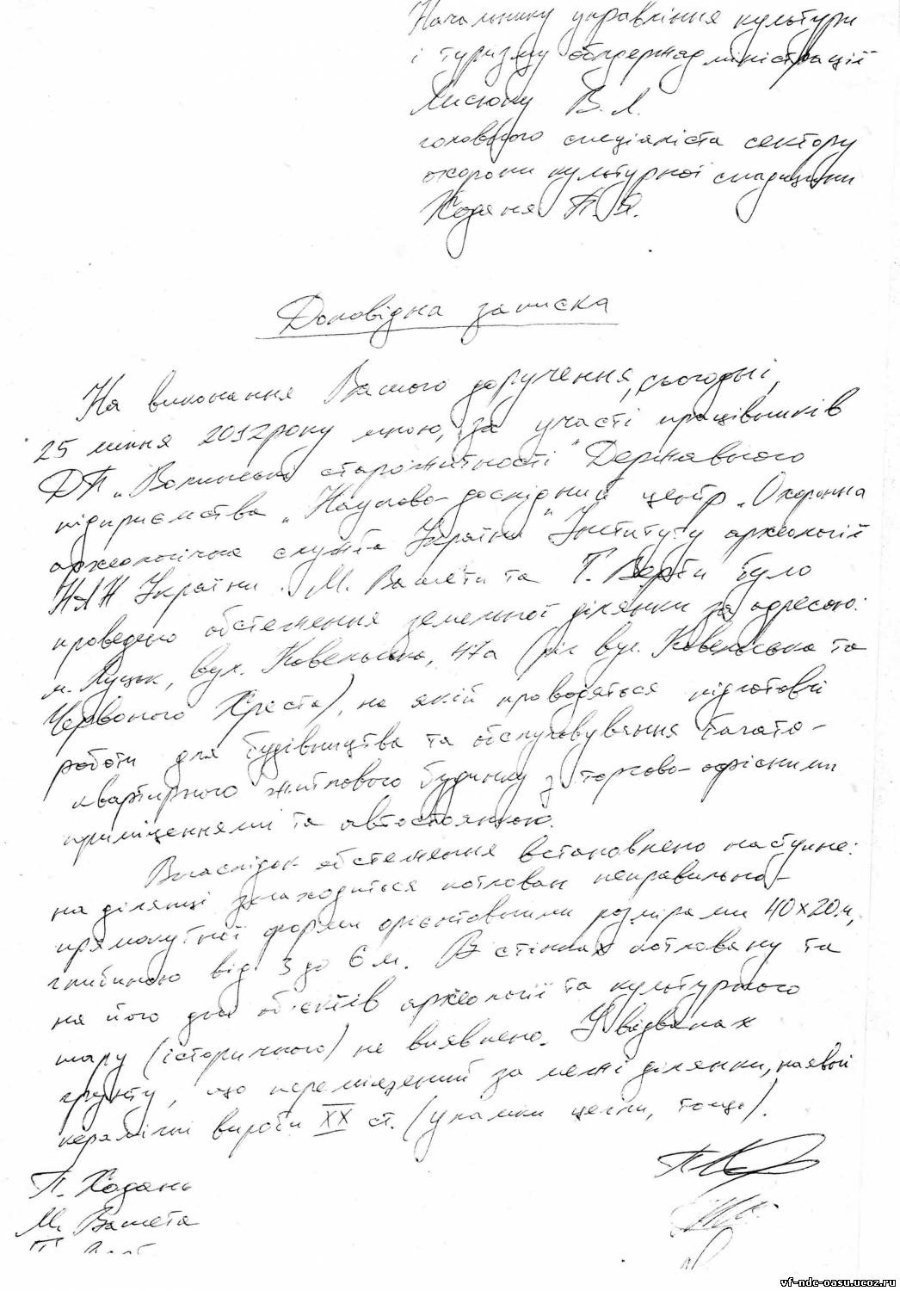 Начальнику управління культури
і туризму облдержадміністрації
Лисюку В.Л.
головного спеціаліста сектору
охорони культурної спадщини
Ходаня П.Я.
Доповідна записка
На виконання Вашого доручення, сьогодні,
25 липня 2012 року мною, за участі працівників
ДП „Волинські старожитності" Державного
підприємства „Науково-дослідний центр „Охоронна
археологічна служба України" Інституту археології
НАН України М. Вашети та Т. Верби було
проведено обстеження земельної ділянки за адресою:
м. Луцьк, вул. Ковельська, 47а (ріг вул. Ковельська та
Червоного Хреста), на якій проводяться підготовчі
роботи для будівництва та обслуговування багато-
квартирного житлового будинку з торгово-офісними
приміщеннями та автостоянкою.
Внаслідок обстеження встановлено наступне:
на ділянці знаходиться котлован неправильно-
прямокутної форми орієнтовними розмірами 40×20 м,
глибиною від 3 до 6 м. В стінках котловану та
на його дні об'єктів археології та культурного
шару (історичного) не виявлено. У відвалах
грунту, що переміщений за межі ділянки, наявні
керамічні вироби XX ст. (уламки цегли, тощо).
П. Ходань
М. Вашета
vf-ndc-oasu.ucoz.ru